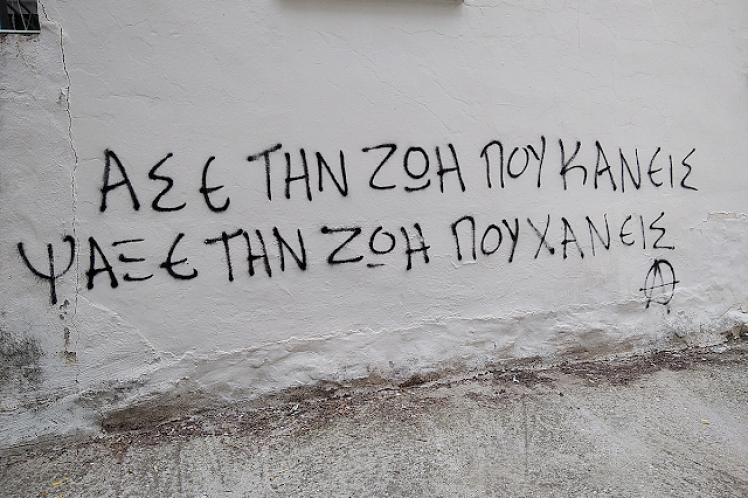 ΑΣΕ ΤΗΝ ΖΩΗ ΠΟΥ ΚΑΝΕΙΣ
ΨΑΞΕ ΤΗΝ ΖΩΗ ΠΟΥ ΧΑΝΕΙΣ
Ⓐ